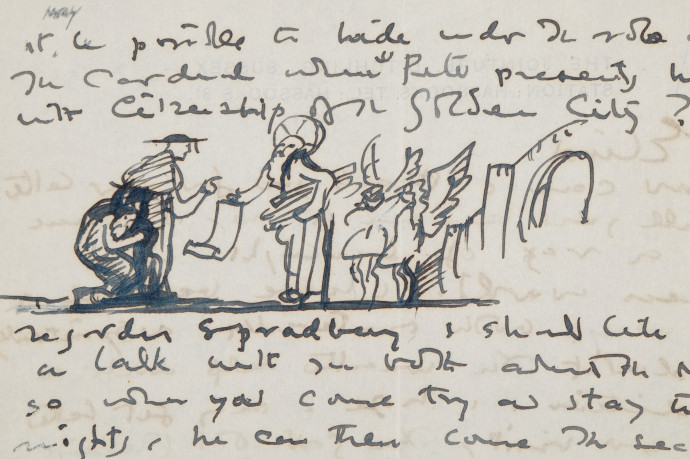 it be possible to hide under the robe
the Cardinal when Peter presents
with Citizenship of the Golden City?
regarding Spradbery I should like
a talk with you both about the
so when you come try and stay
nights, he can then come the